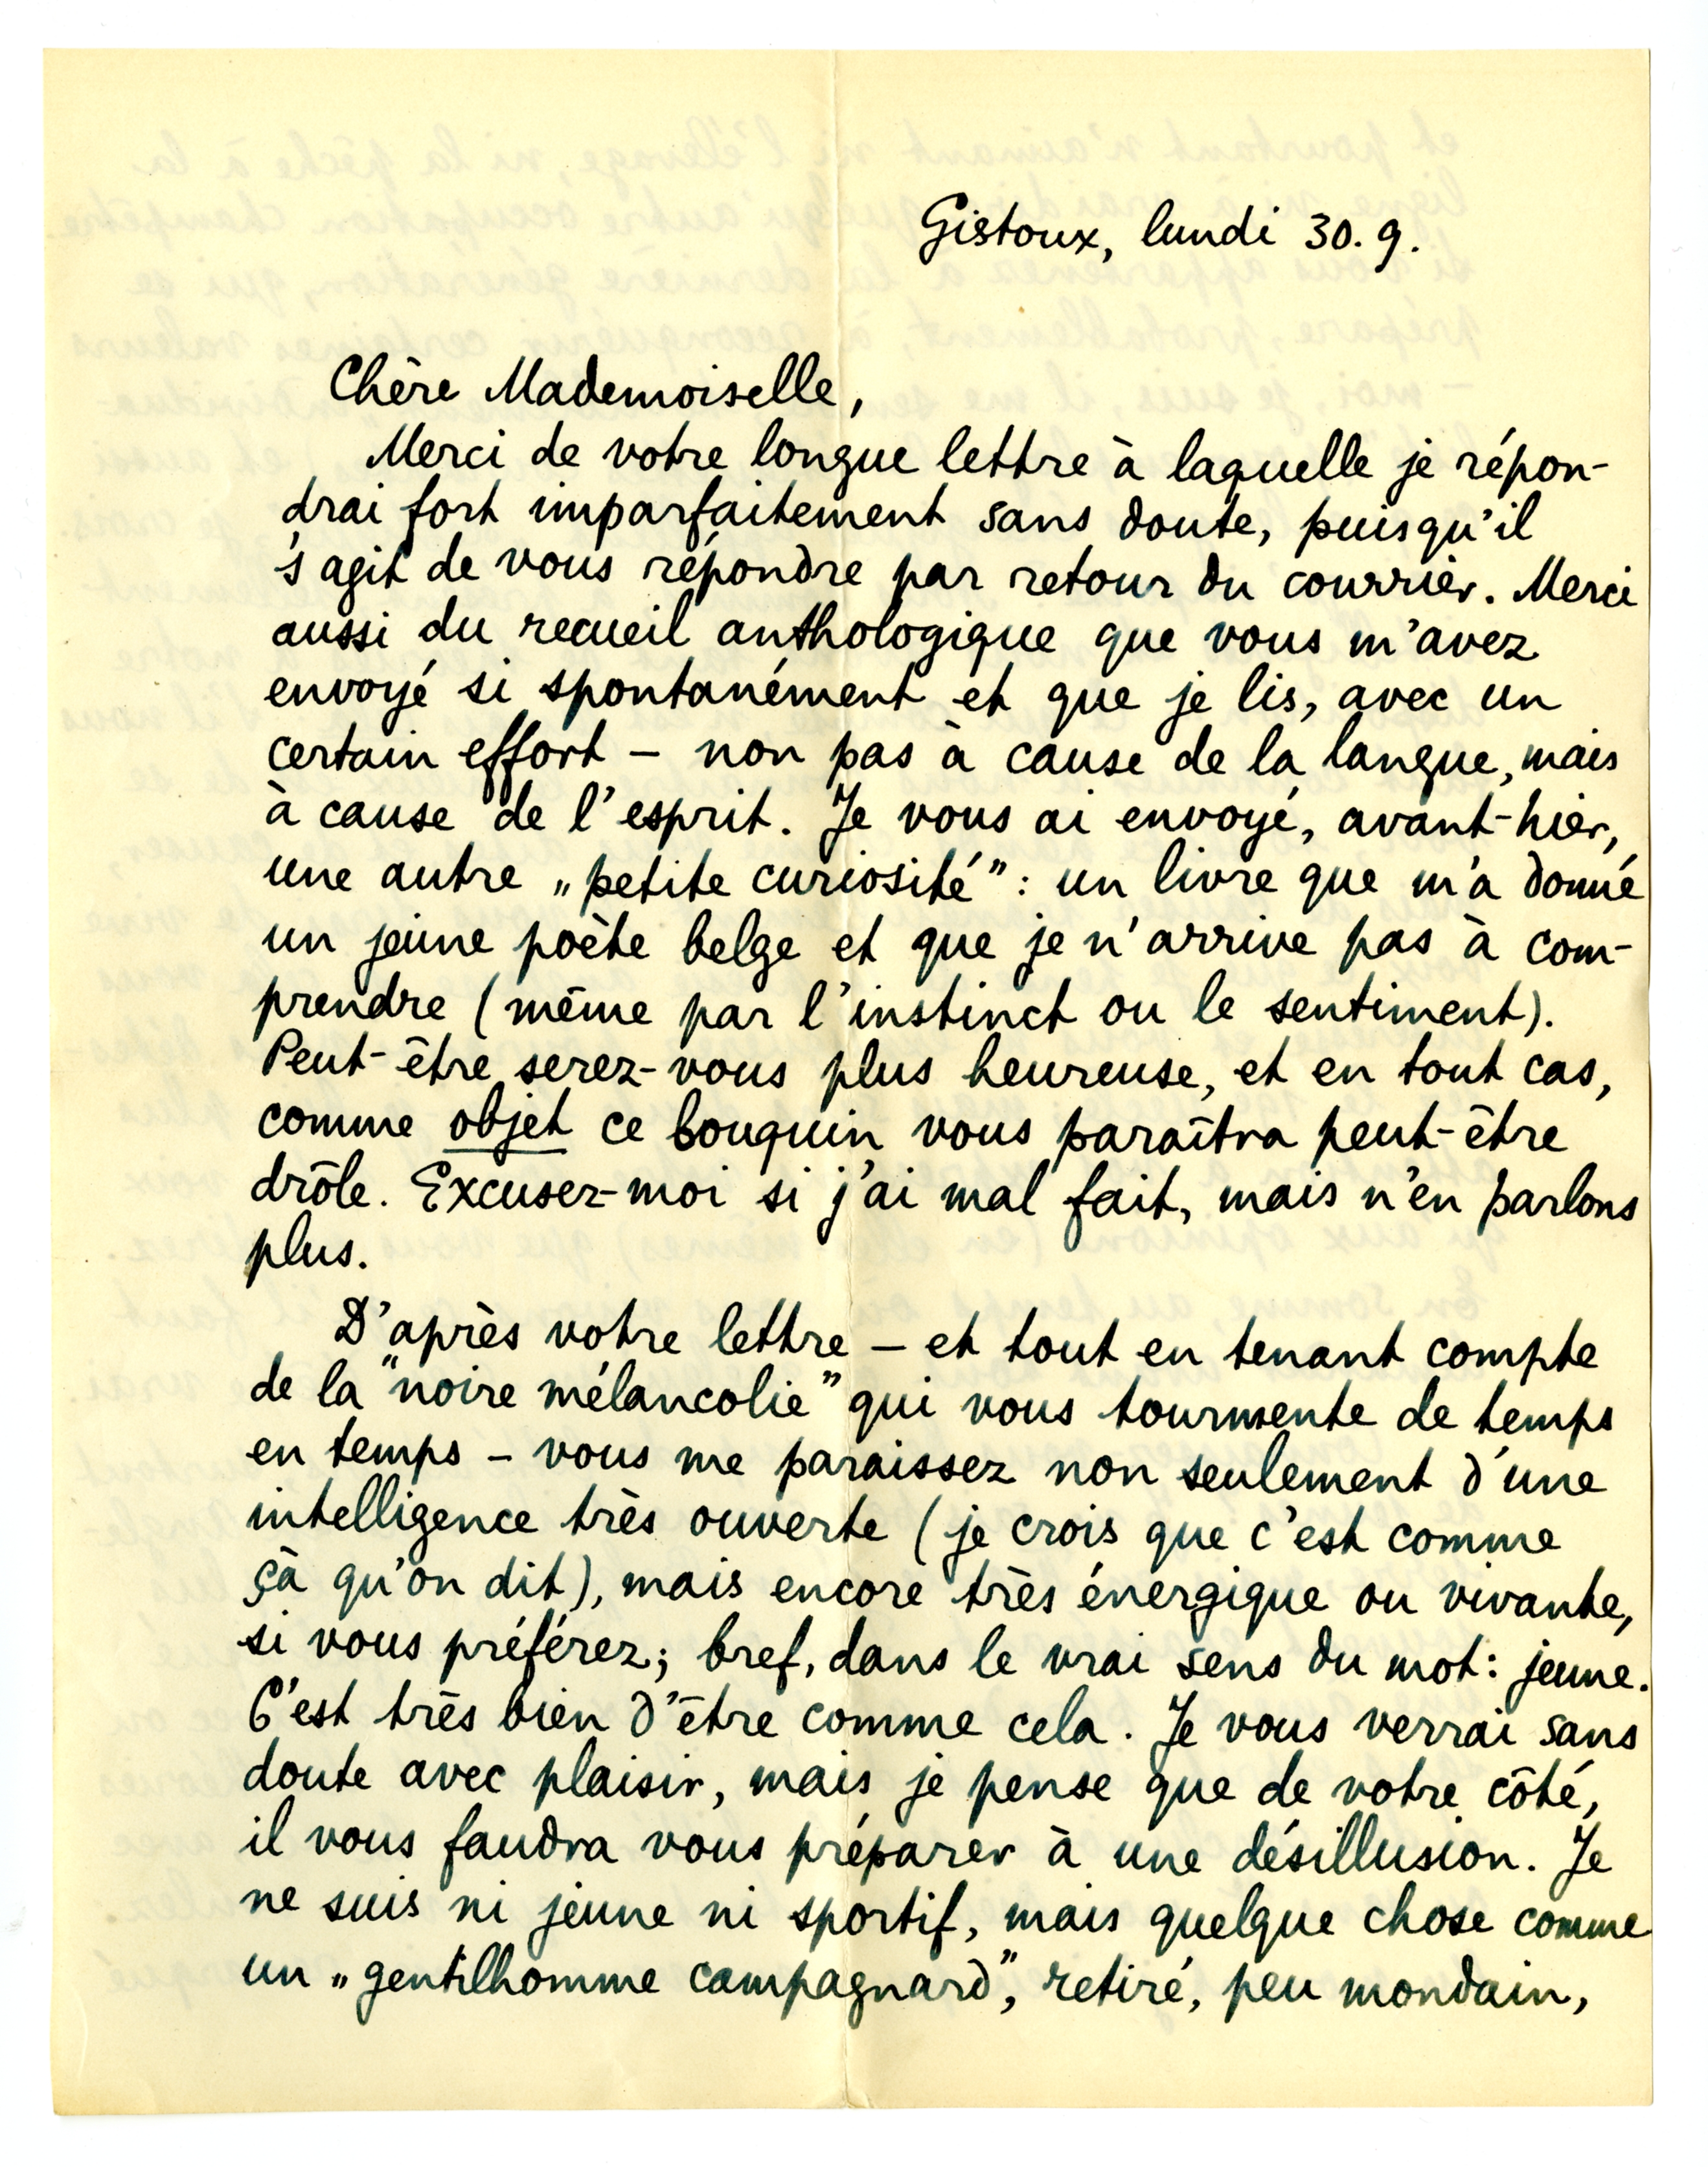 Gistoux, lundi 30.9.
Chère Mademoiselle,
Merci de votre longue lettre à laquelle je répon-
drai fort imparfaitement sans doute, puisqu'il
s'agit de vous répondre par retour du courrier. Merci
aussi du recueil anthologique que vous m'avez
envoyé si spontanément et que je lis, avec un
certain effort – non pas à cause de la langue, mais
à cause de l'esprit. Je vous ai envoyé, avant-hier,
une autre „petite curiosité": un livre que m'a donné
un jeune poète belge et que je n'arrive pas à com-
prendre (même par l'instinct ou le sentiment).
Peut-être serez-vous plus heureuse, et en tout cas,
comme objet ce bouquin vous paraîtra peut-être
drôle. Excusez-moi si j'ai mal fait, mais n'en parlons
plus.
D'après votre lettre – et tout en tenant compte
de la "noire mélancolie" qui vous tourmente de temps
en temps – vous me paraissez non seulement d'une
intelligence très ouverte (je crois que c'est comme
çà qu'on dit), mais encore très énergique ou vivante,
si vous préférez; bref, dans le vrai sens du mot: jeune.
C'est très bien d'être comme cela. Je vous verrai sans
doute avec plaisir, mais je pense que de votre côté,
il vous faudra vous préparer à une désillusion. Je
ne suis ni jeune ni sportif, mais quelque chose comme
un „gentilhomme campagnard", retiré, peu mondain,